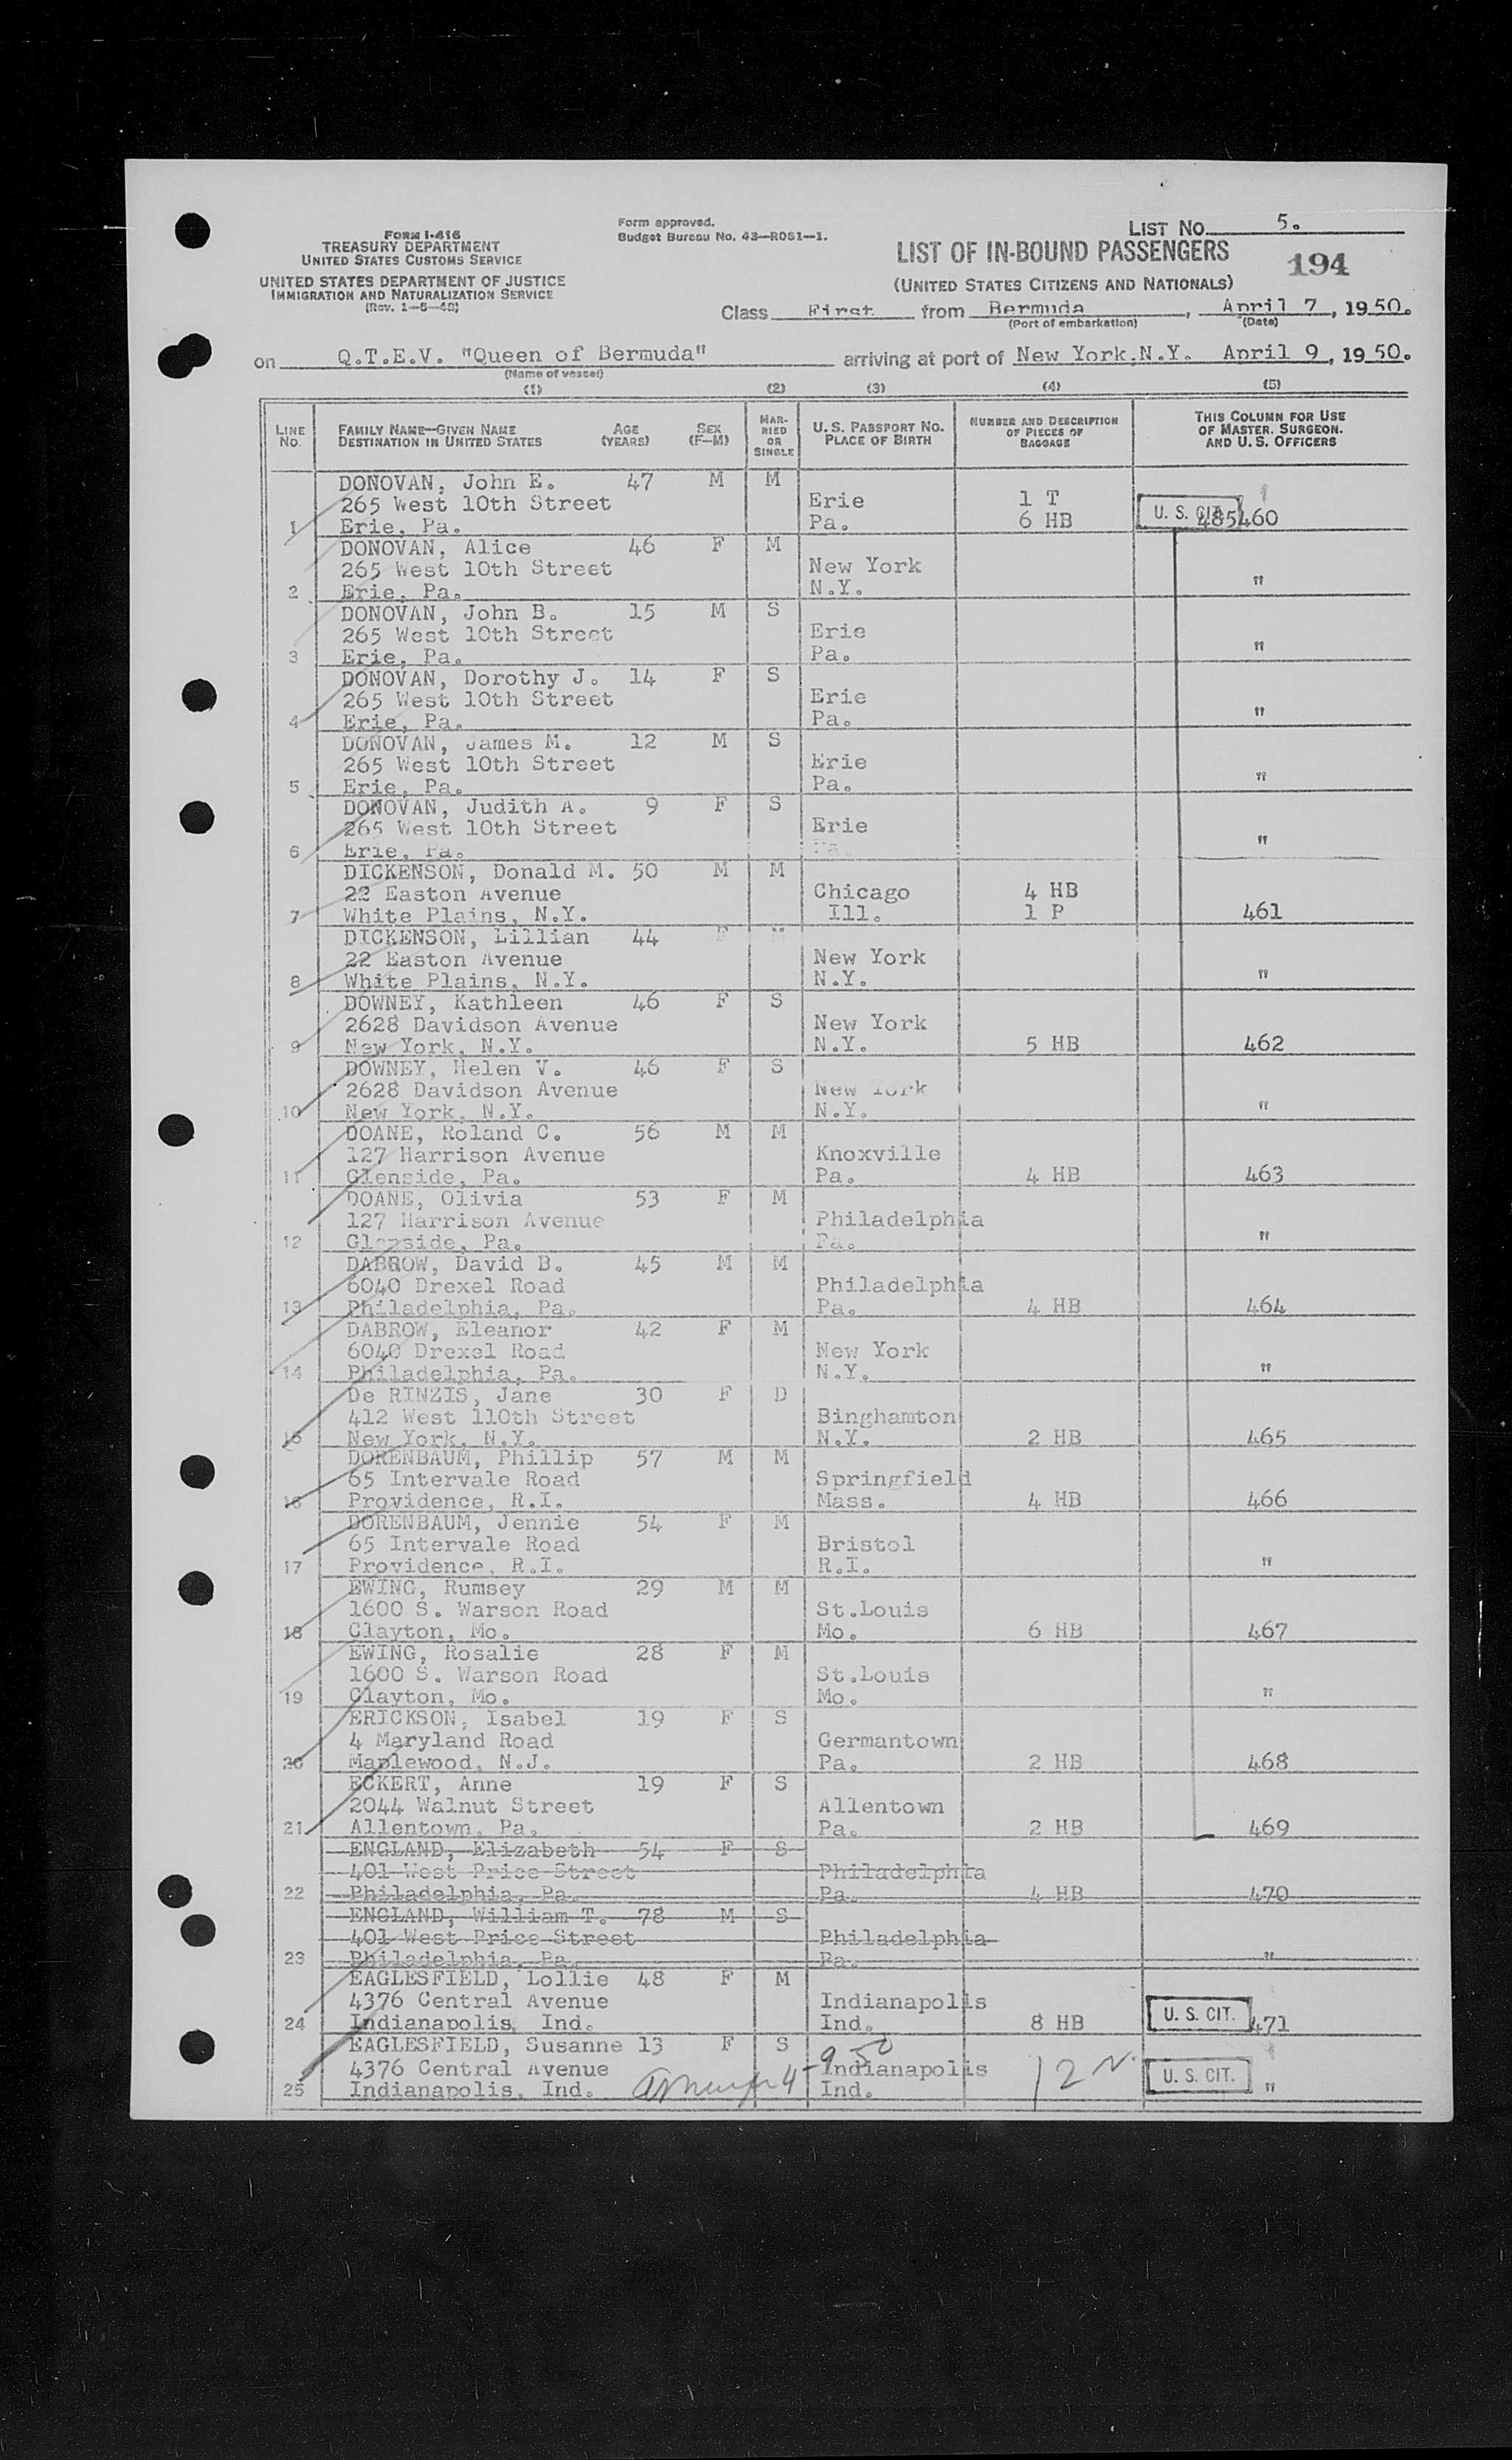 FORM I-416
TREASURY DEPARTMENT
UNITED STATES CUSTOMS SERVICE
UNITED STATES DEPARTMENT OF JUSTICE
IMMIGRATION AND NATURALIZATION SERVICE
(Rev. 1-5-48)
Form approved.
Budget Bureau No. 43-R051-1.
LIST No. 5.
LIST OF IN-BOUND PASSENGERS 194
(UNITED STATES CITIZENS AND NATIONALS)
Class First from Bermuda, April 7, 1950.
(Port of embarkation) (Date)
on Q.T.E.V. "Queen of Bermuda" arriving at port of New York, N.Y. April 9, 1950.
(Name of vessel)
(1) (2) (3) (4) (5)
LINE No. FAMILY NAME—GIVEN NAME DESTINATION IN UNITED STATES AGE (YEARS) SEX (F—M) MARRIED OR SINGLE U. S. PASSPORT No. PLACE OF BIRTH NUMBER AND DESCRIPTION OF PIECES OF BAGGAGE THIS COLUMN FOR USE OF MASTER, SURGEON, AND U. S. OFFICERS
DONOVAN, John E. 47 M M
265 West 10th Street Erie 1 T U. S. CIT.
1 Erie, Pa. Pa. 6 HB 485460
DONOVAN, Alice 46 F M
265 West 10th Street New York
2 Erie, Pa. N.Y. "
DONOVAN, John B. 15 M S
265 West 10th Street Erie
3 Erie, Pa. Pa. "
DONOVAN, Dorothy J. 14 F S
265 West 10th Street Erie
4 Erie, Pa. Pa. "
DONOVAN, James M. 12 M S
265 West 10th Street Erie
5 Erie, Pa. Pa. "
DONOVAN, Judith A. 9 F S
265 West 10th Street Erie
6 Erie, Pa. Pa. "
DICKENSON, Donald M. 50 M M
22 Easton Avenue Chicago 4 HB
7 White Plains, N.Y. Ill. 1 P 461
DICKENSON, Lillian 44 F M
22 Easton Avenue New York
8 White Plains, N.Y. N.Y. "
DOWNEY, Kathleen 46 F S
2628 Davidson Avenue New York
9 New York, N.Y. N.Y. 5 HB 462
DOWNEY, Helen V. 46 F S
2628 Davidson Avenue New York
10 New York, N.Y. N.Y. "
DOANE, Roland C. 56 M M
127 Harrison Avenue Knoxville
11 Glenside, Pa. Pa. 4 HB 463
DOANE, Olivia 53 F M
127 Harrison Avenue Philadelphia
12 Glenside, Pa. Pa. "
DABROW, David B. 45 M M
6040 Drexel Road Philadelphia
13 Philadelphia, Pa. Pa. 4 HB 464
DABROW, Eleanor 42 F M
6040 Drexel Road New York
14 Philadelphia, Pa. N.Y. "
De RINZIS, Jane 30 F D
412 West 110th Street Binghamton
15 New York, N.Y. N.Y. 2 HB 465
DORENBAUM, Phillip 57 M M
65 Intervale Road Springfield
16 Providence, R.I. Mass. 4 HB 466
DORENBAUM, Jennie 54 F M
65 Intervale Road Bristol
17 Providence, R.I. R.I. "
EWING, Rumsey 29 M M
1600 S. Warson Road St.Louis
18 Clayton, Mo. Mo. 6 HB 467
EWING, Rosalie 28 F M
1600 S. Warson Road St.Louis
19 Clayton, Mo. Mo. "
ERICKSON, Isabel 19 F S
4 Maryland Road Germantown
20 Maplewood, N.J. Pa. 2 HB 468
ECKERT, Anne 19 F S
2044 Walnut Street Allentown
21 Allentown, Pa. Pa. 2 HB 469
ENGLAND, Elizabeth 54 F S
401 West Price Street Philadelphia
22 Philadelphia, Pa. Pa. 4 HB 470
ENGLAND, William T. 78 M S
401 West Price Street Philadelphia
23 Philadelphia, Pa. Pa. "
EAGLESFIELD, Lollie 48 F M
4376 Central Avenue Indianapolis U. S. CIT.
24 Indianapolis, Ind. Ind. 8 HB 471
EAGLESFIELD, Susanne 13 F S
4376 Central Avenue 4-9-50 Indianapolis 12 U. S. CIT.
25 Indianapolis, Ind. Ind. "